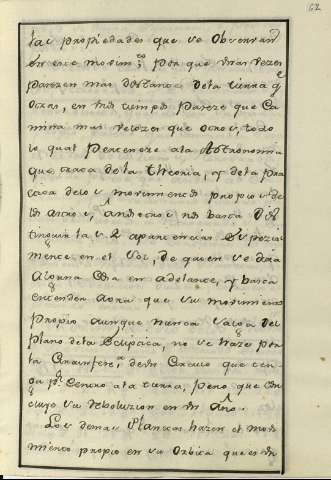 62
las propiedades que se observan
en este movim.to; por que unas vezes
parezen mas distantes de la tierra q.e
otras, en unos tiempos pareze que ca
mina mas velozes que otros, todo
lo qual pertenece a la Astronomia
que trata de la theoria, y de la pra
de los movimientos propios de
los astros, a nosotros nos basta dis
tinguir las 2 apariencias
mente en el Sol, de quien se dira
alguna cosa en adelante, y basta
entender aora que su movimiento
propio aunque nunca salga del
plano de la Ecliptica, no se haze por
la circunfer.a de un circulo que ten
ga p.r centro a la tierra, pero que con
cluye su reboluzion en un Año.
Los demas Planetas hazen el movi
miento propio en su orbita que es un